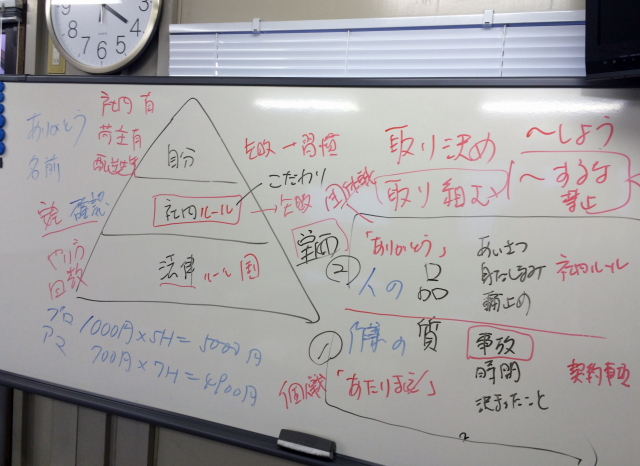 3
4
5
6
7
8
9
ありがとう
名前
社内 有
荷主有
自分
社内ルール
こだわり
法律 ルール 国
確認
回数
プロ 1000円×5H=5000円
アマ 700円×7H=4900円
失敗→習慣
失敗
取り決め
取り組む
〜しよう
〜するな
禁止
「ありがとう」
② 人の品
あいさつ
身だしなみ
社内ルール
① 作業の質
事故
時間
決まったこと
契約事項
個戦
「あたりまえ」